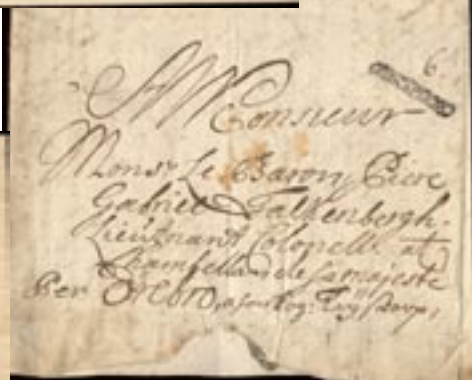 6
A Monsieur
Monsr Le Baron, Piere
Gabriel Falkenbergh.
Lieutnant Colonell et
Chambellan de sa majesté
Per Örebro,